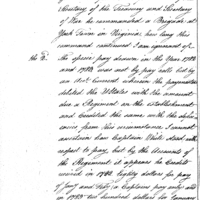 Secretary of the Treasury and Secretary
of War he commanded a Brigade at
York Town in Virginia, how long this
command continued I am ignorant of.
the 2d. The specie pay drawn in the Year 1782
and 1783 was not by pay rolls but by
an Act Current wherein the paymaster
debited the UStates with the amount
due a Regiment on the establishment
and Credited the same with the
some from this circumstance I cannot
ascertain how Captain White stood with
respect to pay, but by the Accounts of
the Regiment it appears he
in 1782 Eighty dollars for pay
of Jany and Feby a Captains pay only and
in 1783 two hundred dollars for January